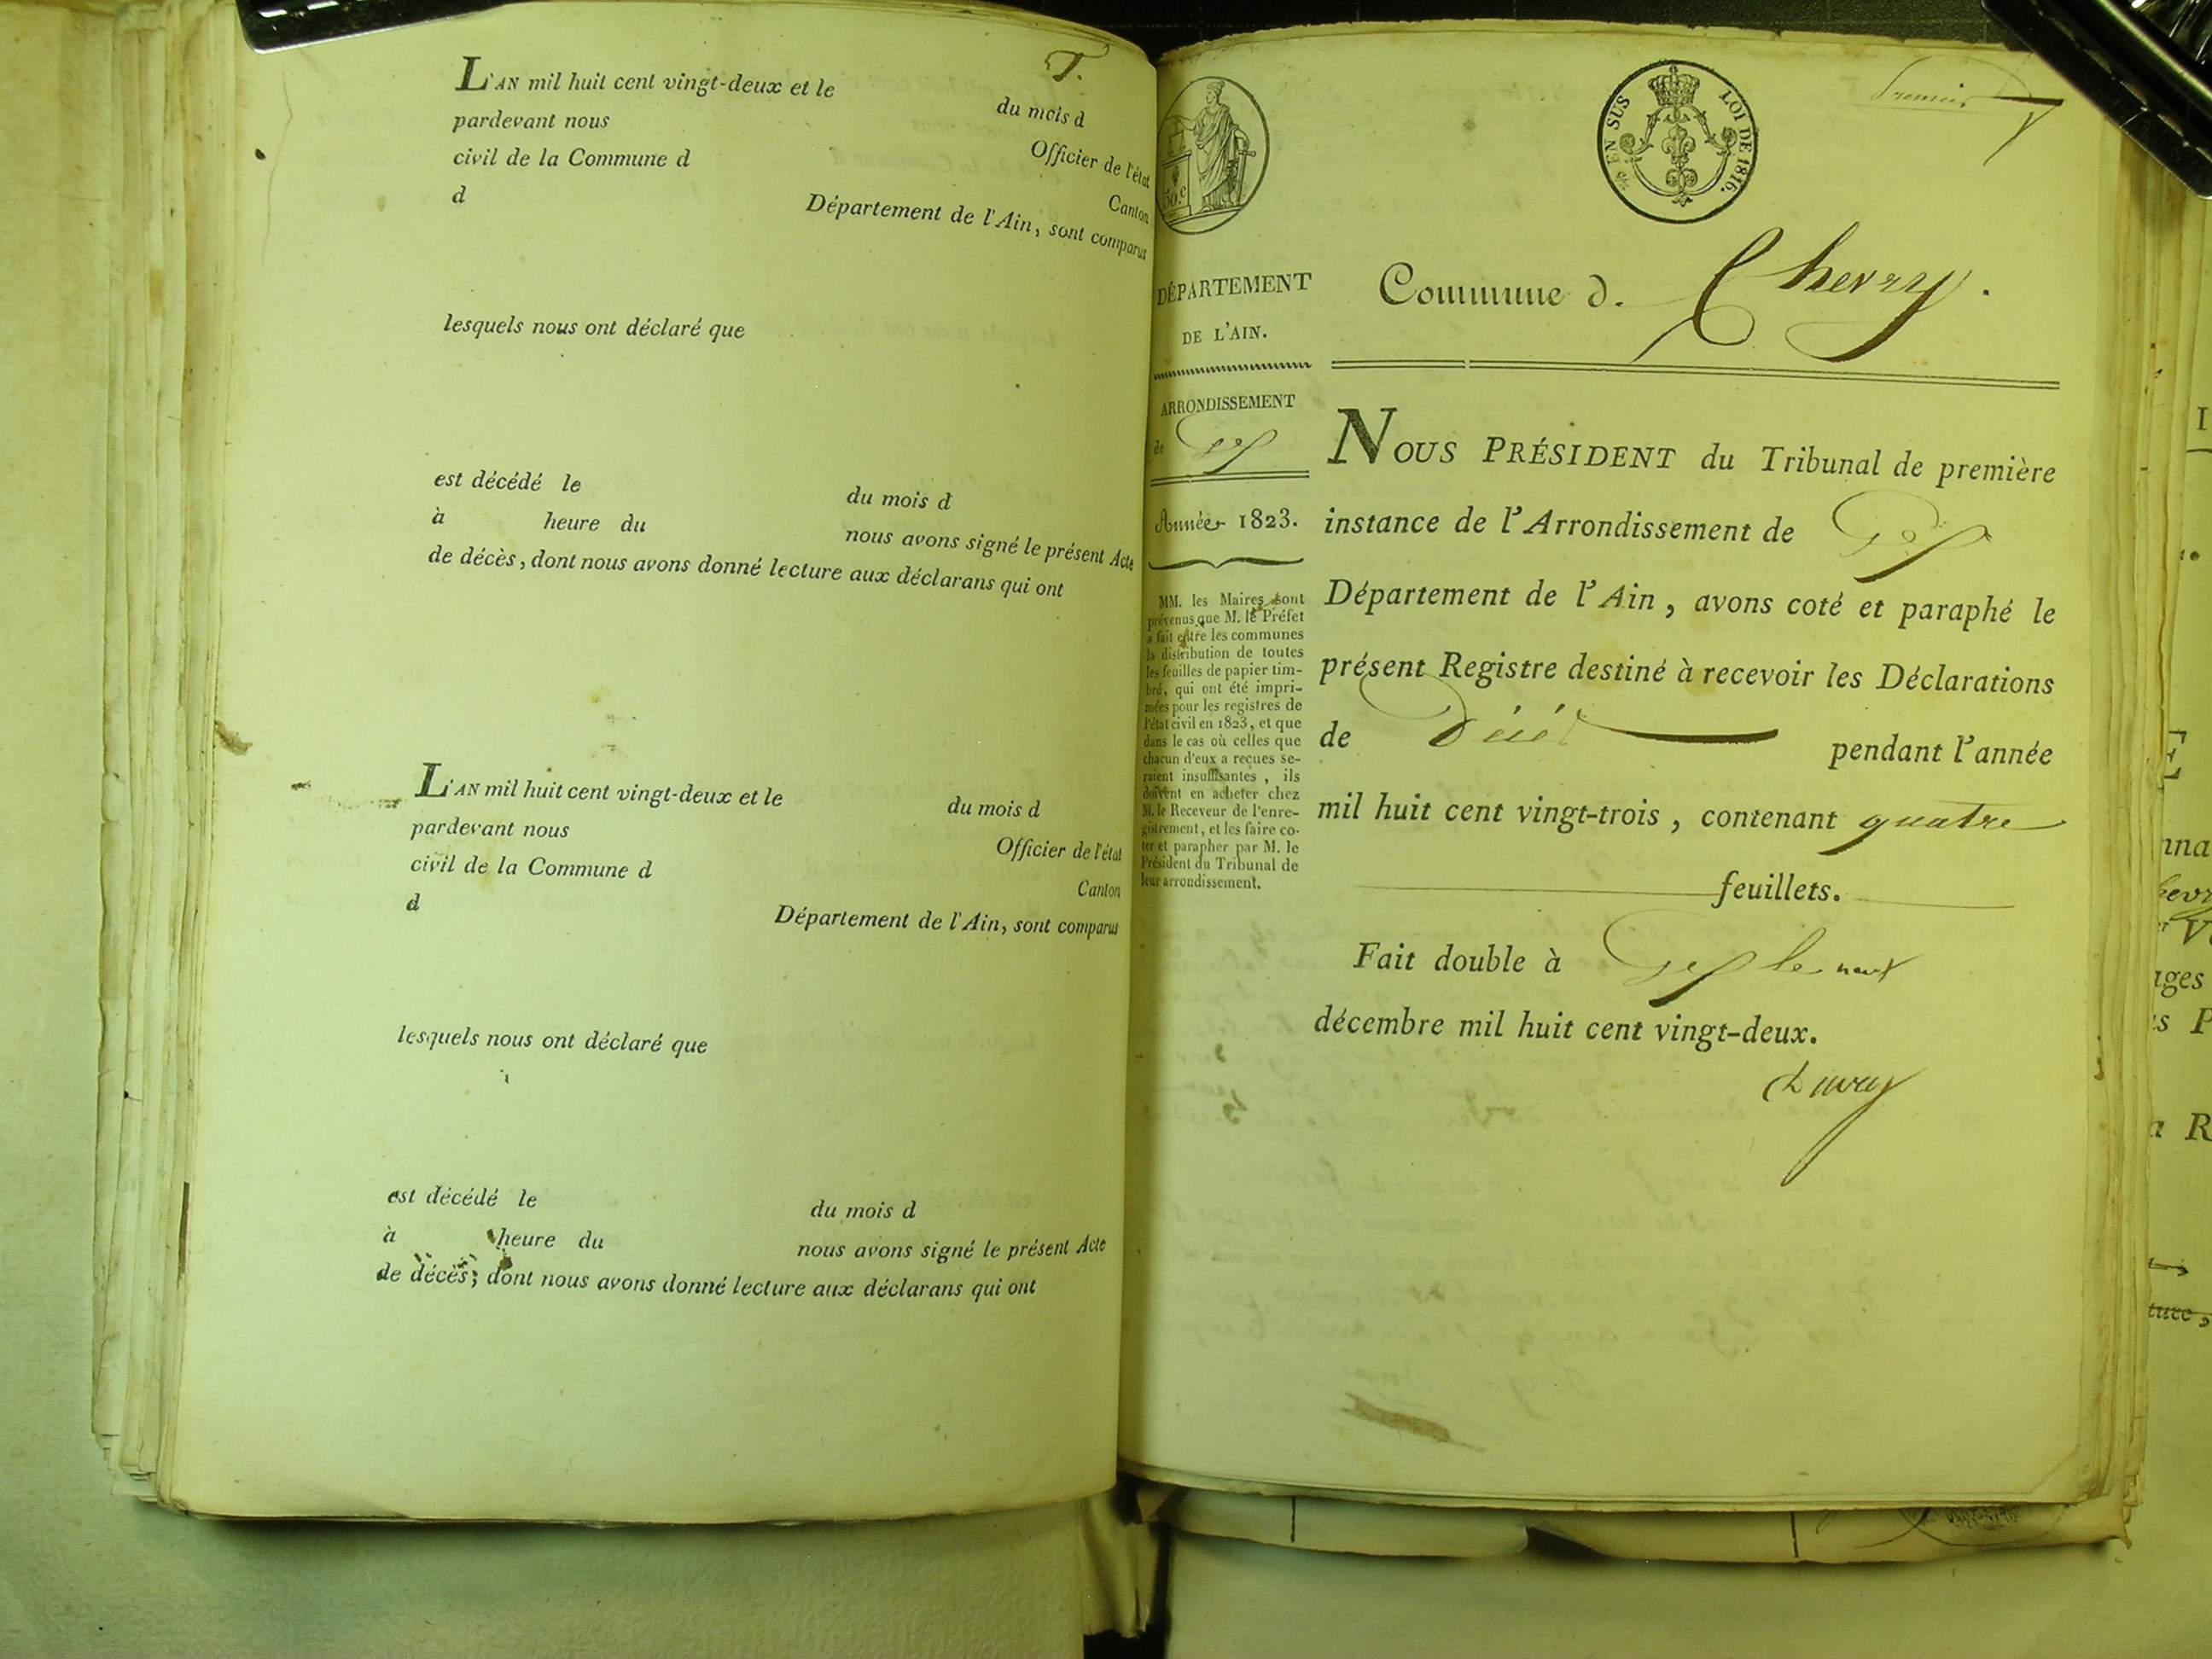 T.
L'AN mil huit cent vingt-deux et le du mois d
pardevant nous Officier de l'état
civil de la Commune d Canton
d Département de l'Ain, sont comparus
lesquels nous ont déclaré que
est décédé le du mois d
à heure du nous avons signé le présent Acte
de décès, dont nous avons donné lecture aux déclarans qui ont
L'AN mil huit cent vingt-deux et le du mois d
pardevant nous Officier de l'état
civil de la Commune d Canton
d Département de l'Ain, sont comparus
lesquels nous ont déclaré que
est décédé le du mois d
à heure du nous avons signé le présent Acte
de décès, dont nous avons donné lecture aux déclarans qui ont
50.c
EN SUS LOI DE 1816.
Premier
DÉPARTEMENT
DE L'AIN.
ARRONDISSEMENT
de Gex
Année 1823.
MM. les Maires sont
prévenus que M. le Préfet
a fait entre les communes
la distribution de toutes
les feuilles de papier tim-
bré, qui ont été impri-
mées pour les registres de
l'état civil en 1823, et que
dans le cas où celles que
chacun d'eux a reçues se-
raient insuffisantes, ils
doivent en acheter chez
M. le Receveur de l'enre-
gistrement, et les faire co-
ter et parapher par M. le
Président du Tribunal de
leur arrondissement.
Commune d. Chevry.
NOUS PRÉSIDENT du Tribunal de première
instance de l'Arrondissement de Gex
Département de l'Ain, avons coté et paraphé le
présent Registre destiné à recevoir les Déclarations
de Décès pendant l'année
mil huit cent vingt-trois, contenant quatre
feuillets.
Fait double à Gex le neuf
décembre mil huit cent vingt-deux.